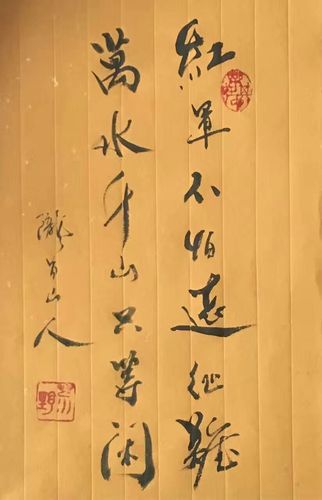 紅軍不怕遠征難
萬水千山只等閑
隴 山人